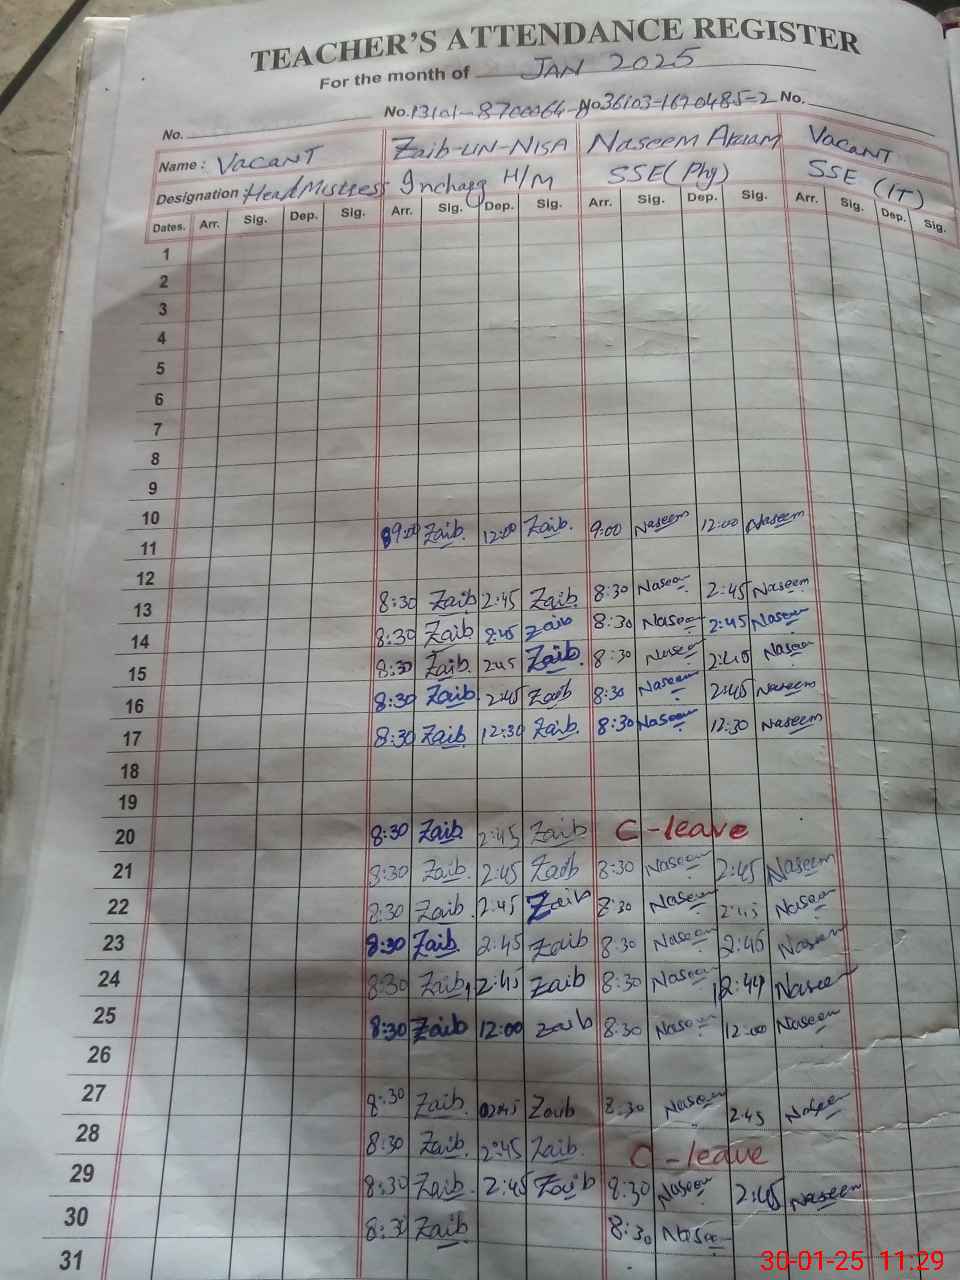 TEACHER'S ATTENDANCE REGISTER
For the month of JAN 2025
No. No. No. 36103-1670485-2 No.
Name : VACANT Zaib-UN-NISA Naseem Akram VACANT
Designation Head Mistress Incharg H/M SSE(Phy) SSE (IT)
Dates. Arr. Sig. Dep. Sig. Arr. Sig. Dep. Sig. Arr. Sig. Dep. Sig. Arr. Sig. Dep. Sig.
1
2
3
4
5
6
7
8
9
10 9:00 Zaib. 12:00 Zaib. 9:00 Naseem 12:00 Naseem
11
12
13 8:30 Zaib 2:45 Zaib 8:30 Naseem 2:45 Naseem
14 8:30 Zaib 2:45 Zaib 8:30 Naseem 2:45 Naseem
15 8:30 Zaib. 2:45 Zaib. 8:30 Naseem 2:45 Naseem
16 8:30 Zaib. 2:45 Zaib 8:30 Naseem 2:45 Naseem
17 8:30 Zaib 12:30 Zaib. 8:30 Naseem 12:30 Naseem
18
19
20 8:30 Zaib 2:45 Zaib C-leave
21 8:30 Zaib. 2:45 Zaib 8:30 Naseem 2:45 Naseem
22 8:30 Zaib. 2:45 Zaib 8:30 Naseem 2:45 Naseem
23 8:30 Zaib. 2:45 Zaib 8:30 Naseem 2:45 Naseem
24 8:30 Zaib 12:45 Zaib 8:30 Naseem Naseem
25 8:30 Zaib 12:00 Zaib 8:30 Naseem 12:00 Naseem
26
27 8:30 Zaib. 02:45 Zaib 8:30 Naseem 2:45 Naseem
28 8:30 Zaib. 2:45 Zaib. C-leave
29 8:30 Zaib. 2:45 Zaib 8:30 Naseem 2:45 Naseem
30 8:30 Zaib 8:30 Naseem
31
30-01-25 11:29